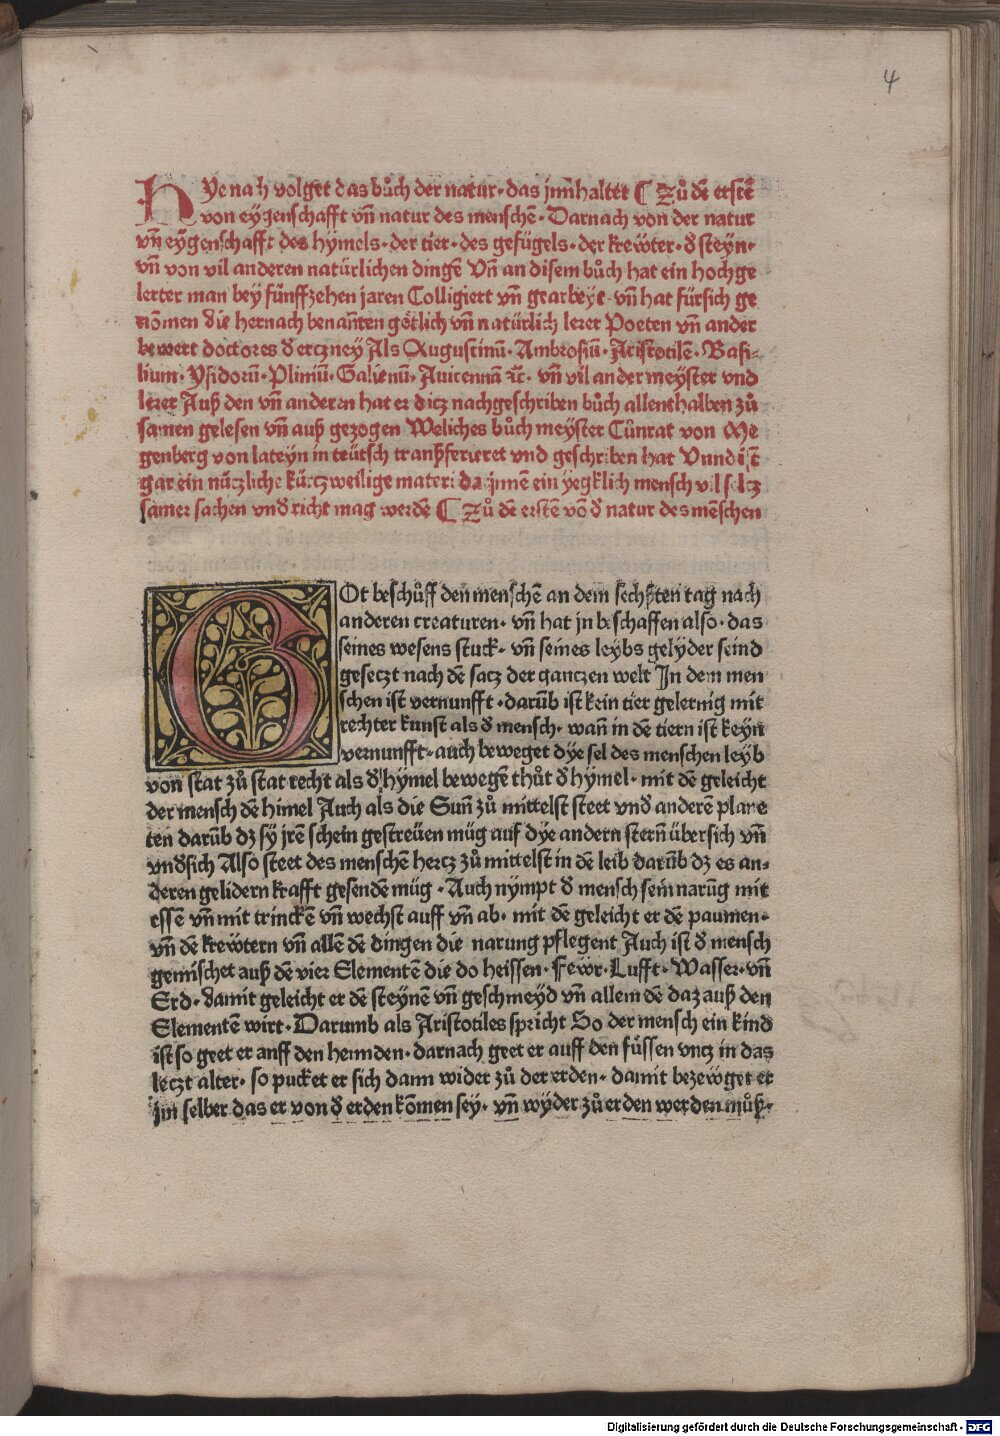 4
HYe nah volget das bůch der natur· das jnnhaltet ⸿ Zů dē erstē
von eygenschafft vñ natur des menschē· Darnach von der natur
vñ eygenschafft des hymels· der tier· des gefügels· der krewter· d̕ steyn·
vñ von vil anderen natürlichen dingē Vñ an disem bůch hat ein hochge
lerter man bey fünffzehen jaren Colligiert vñ gearbeyt· vñ hat fürsich ge
nōmen die hernach benanten götlich vñ natürlich lerer Poeten vñ ander
bewert doctores d̕ erczney Als Augustinū· Ambrosiū· Aristotilē· Basi-
lium· Ysidorū· Pliniū· Galienū· Auicennā ꝛc̄· vñ vil ander meyster vnd
lerer Auß den vñ anderen hat er dicz nachgeschriben bůch allenthalben zů
samen gelesen vñ auß gezogen Weliches bůch meyster Cůnrat von Me
genberg von lateyn in teütsch tranßferieret vnd geschriben hat Vnnd ist
gar ein nüczliche kürczweilige materi darjnnē ein yegklich mensch vil selcz
samer sachen vnd̕richt mag werdē ⸿ Zů dē erstē vō d̕ natur des mēschen
GOt beschůff den menschē an dem sechßten tag nach
anderen creaturen· vñ hat jn beschaffen also· das
seines wesens stuck· vñ seines leybs gelyder seind
geseczt nach dē sacz der ganczen welt Jn dem men
schen ist vernunfft· darūb ist kein tier gelernig mit
rechter kunst als d̕ mensch· wañ in dē tiern ist keyn
vernunfft· auch beweget dye sel des menschen leyb
von stat zů stat recht als d̕ hymel bewegē thůt d̕ hymel· mit dē geleicht
der mensch dē himel Auch als die Suñ zů mittelst steet vnd anderē plane
ten darūb dz sy jrē schein gestreüen müg auf dye andern sterñ übersich vñ
vnd̕sich Also steet des menschē hercz zů mittelst in dē leib darūb dz es an-
deren gelidern krafft gesendē müg· Auch nympt d̕ mensch sein narūg mit
essē vñ mit trinckē vñ wechst auff vñ ab· mit dē geleicht er dē paumen·
vñ dē krewtern vñ allē dē dingen die narung pflegent Auch ist d̕ mensch
gemischet auß dē vier Elementē die do heissen· Fewr· Lufft· Wasser· vñ
Erd· damit geleicht er dē steynē vñ geschmeyd vñ allem dē daz auß den
Elementē wirt· Darumb als Aristotiles spricht So der mensch ein kind
ist so geet er auff den hennden· darnach geet er auff den füssen vncz in das
leczt alter· so pucket er sich dann wider zů der erden· damit bezewget er
jm selber das er von d̕ erden kōmen sey· vñ wyder zů erden werden můß·
Digitalisierung gefördert durch die Deutsche Forschungsgemeinschaft - DFG